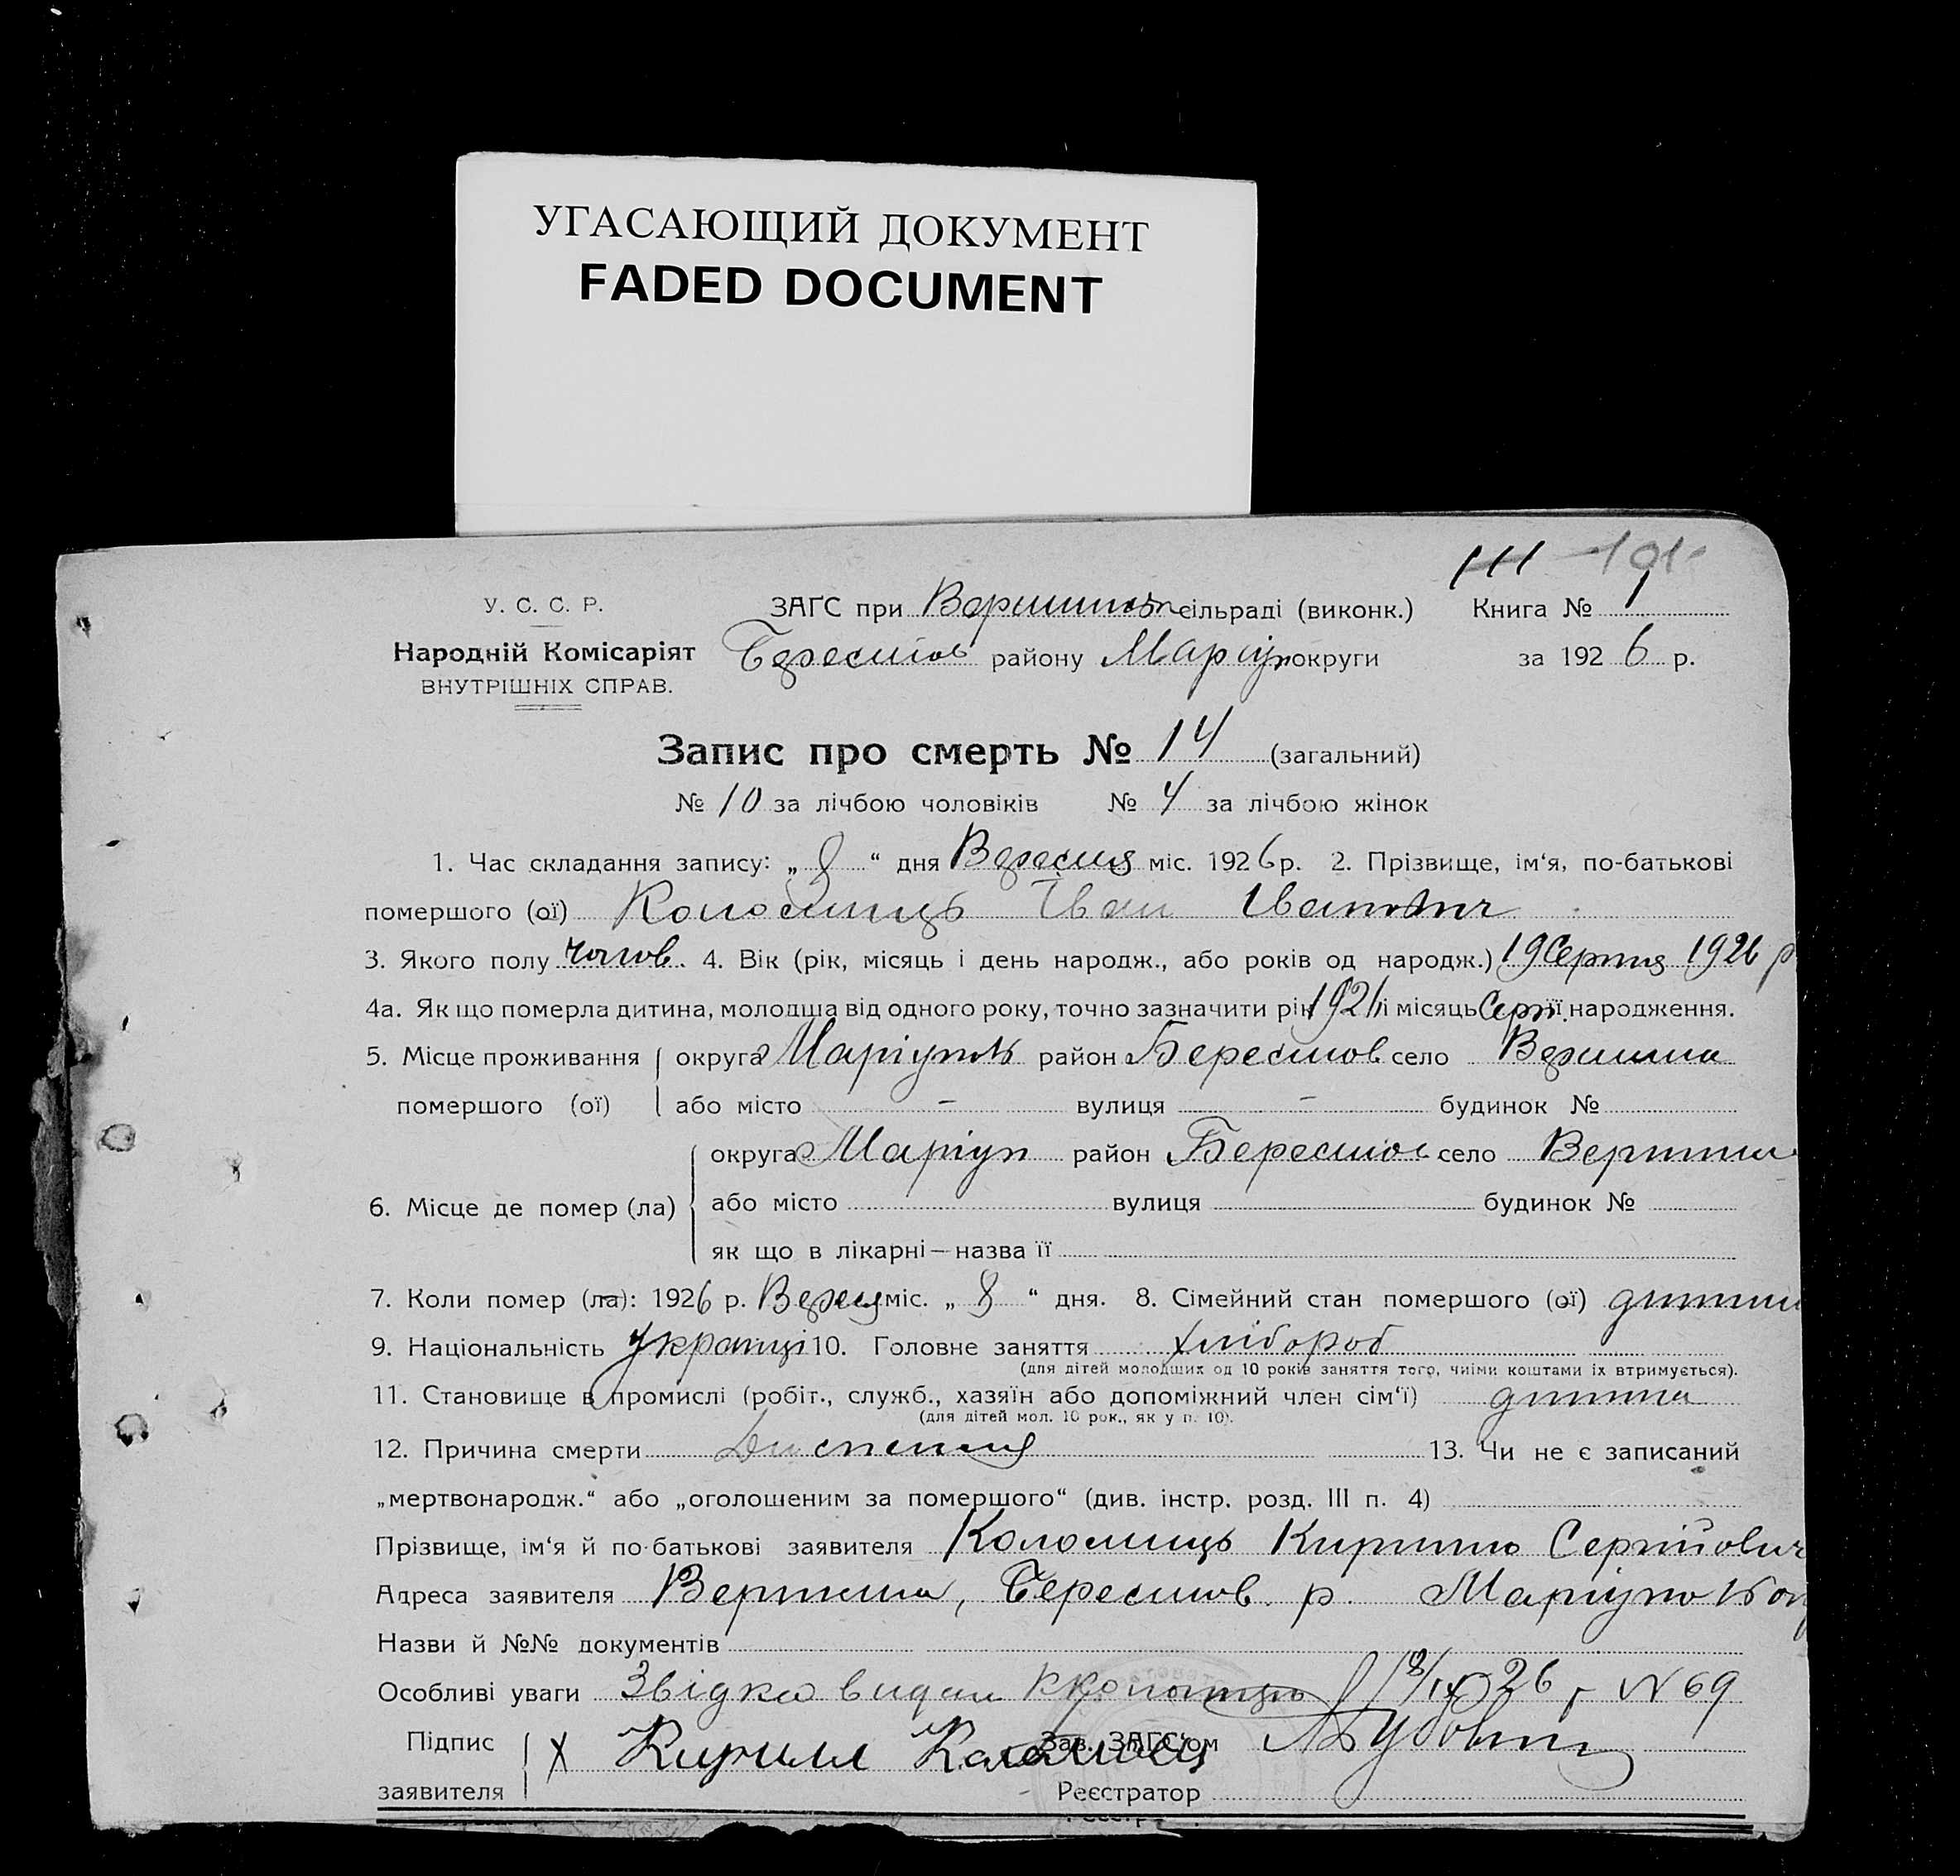 УГАСАЮЩИЙ ДОКУМЕНТ
FADED DOCUMENT
111 101
У. С. С. Р. ЗАГС при сільраді (виконк.) Книга № 1
Народній Комісаріят району Маріуп округи за 1926 р.
ВНУТРІШНІХ СПРАВ.
Запис про смерть № 14 (загальний)
№ 10 за лічбою чоловіків № 4 за лічбою жінок
1. Час складання запису: „ 8 “ дня Вересня міс. 1926 р. 2. Прізвище, ім‘я, по-батькові
помершого (ої) Коломиць Іван Іванович
3. Якого полу чолов. 4. Вік (рік, місяць і день народж., або років од народж.) 19 Серпня 1926 р
4а. Як що померла дитина, молодша від одного року, точно зазначити рік 1926 і місяць Серп. її народження.
5. Місце проживання округа Маріупол район Берестов село Вершина
помершого (ої) або місто – вулиця – будинок №
округа Маріуп район Берестов село Вершина
6. Місце де помер (ла) або місто вулиця будинок №
як що в лікарні — назва її
7. Коли помер (ла): 1926 р. Вересня міс. „ 8 “ дня. 8. Сімейний стан помершого (ої) дитина
9. Національність Українці 10. Головне заняття хлібороб
(для дітей молодших од 10 років заняття того, чиїми коштами їх втримується).
11. Становище в промислі (робіт., служб., хазяїн або допоміжний член сім‘ї) дитина
(для дітей мол. 10 рок., як у п. 10).
12. Причина смерти 13. Чи не є записаний
„мертвонародж.“ або „оголошеним за помершого“ (див. інстр. розд. III п. 4)
Прізвище, ім‘я й по-батькові заявителя Коломиць Кирило Сергійович
Адреса заявителя Вершина, Берестов. р. Маріупол
Назви й №№ документів
Особливі уваги 8/IX 26 р N 69
Підпис Х Кирилл Коломиец Зав. ЗАГС‘ом
заявителя Реєстратор